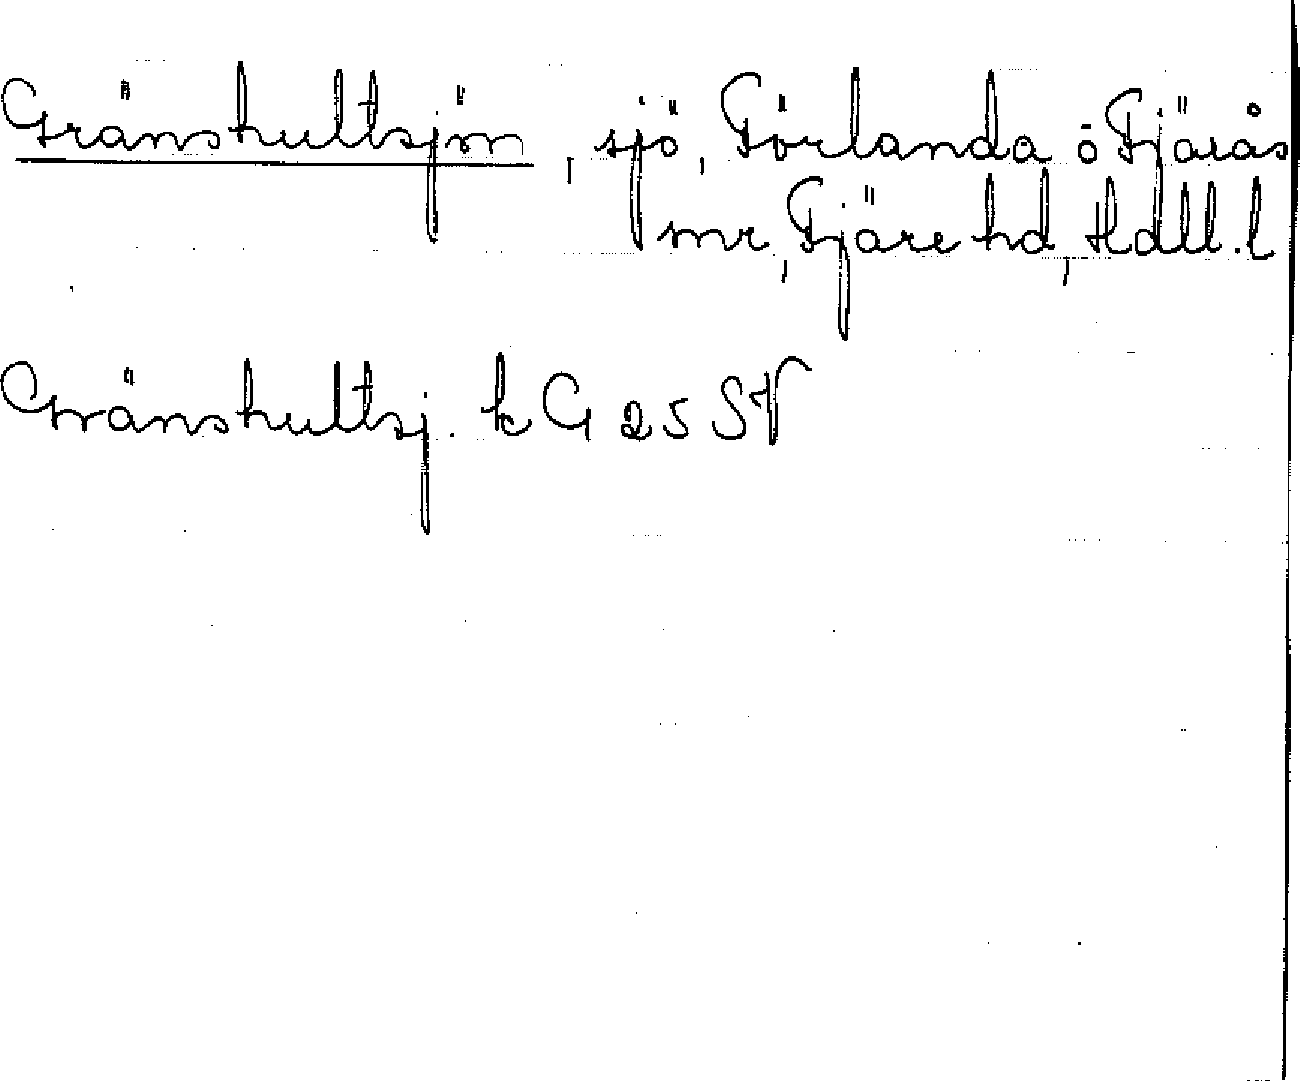 Gränshultsjön, sjö, Förlanda o Fjärås
snr, Fjäre hd, Hall. l
Gränshultsj. k G 25 SV